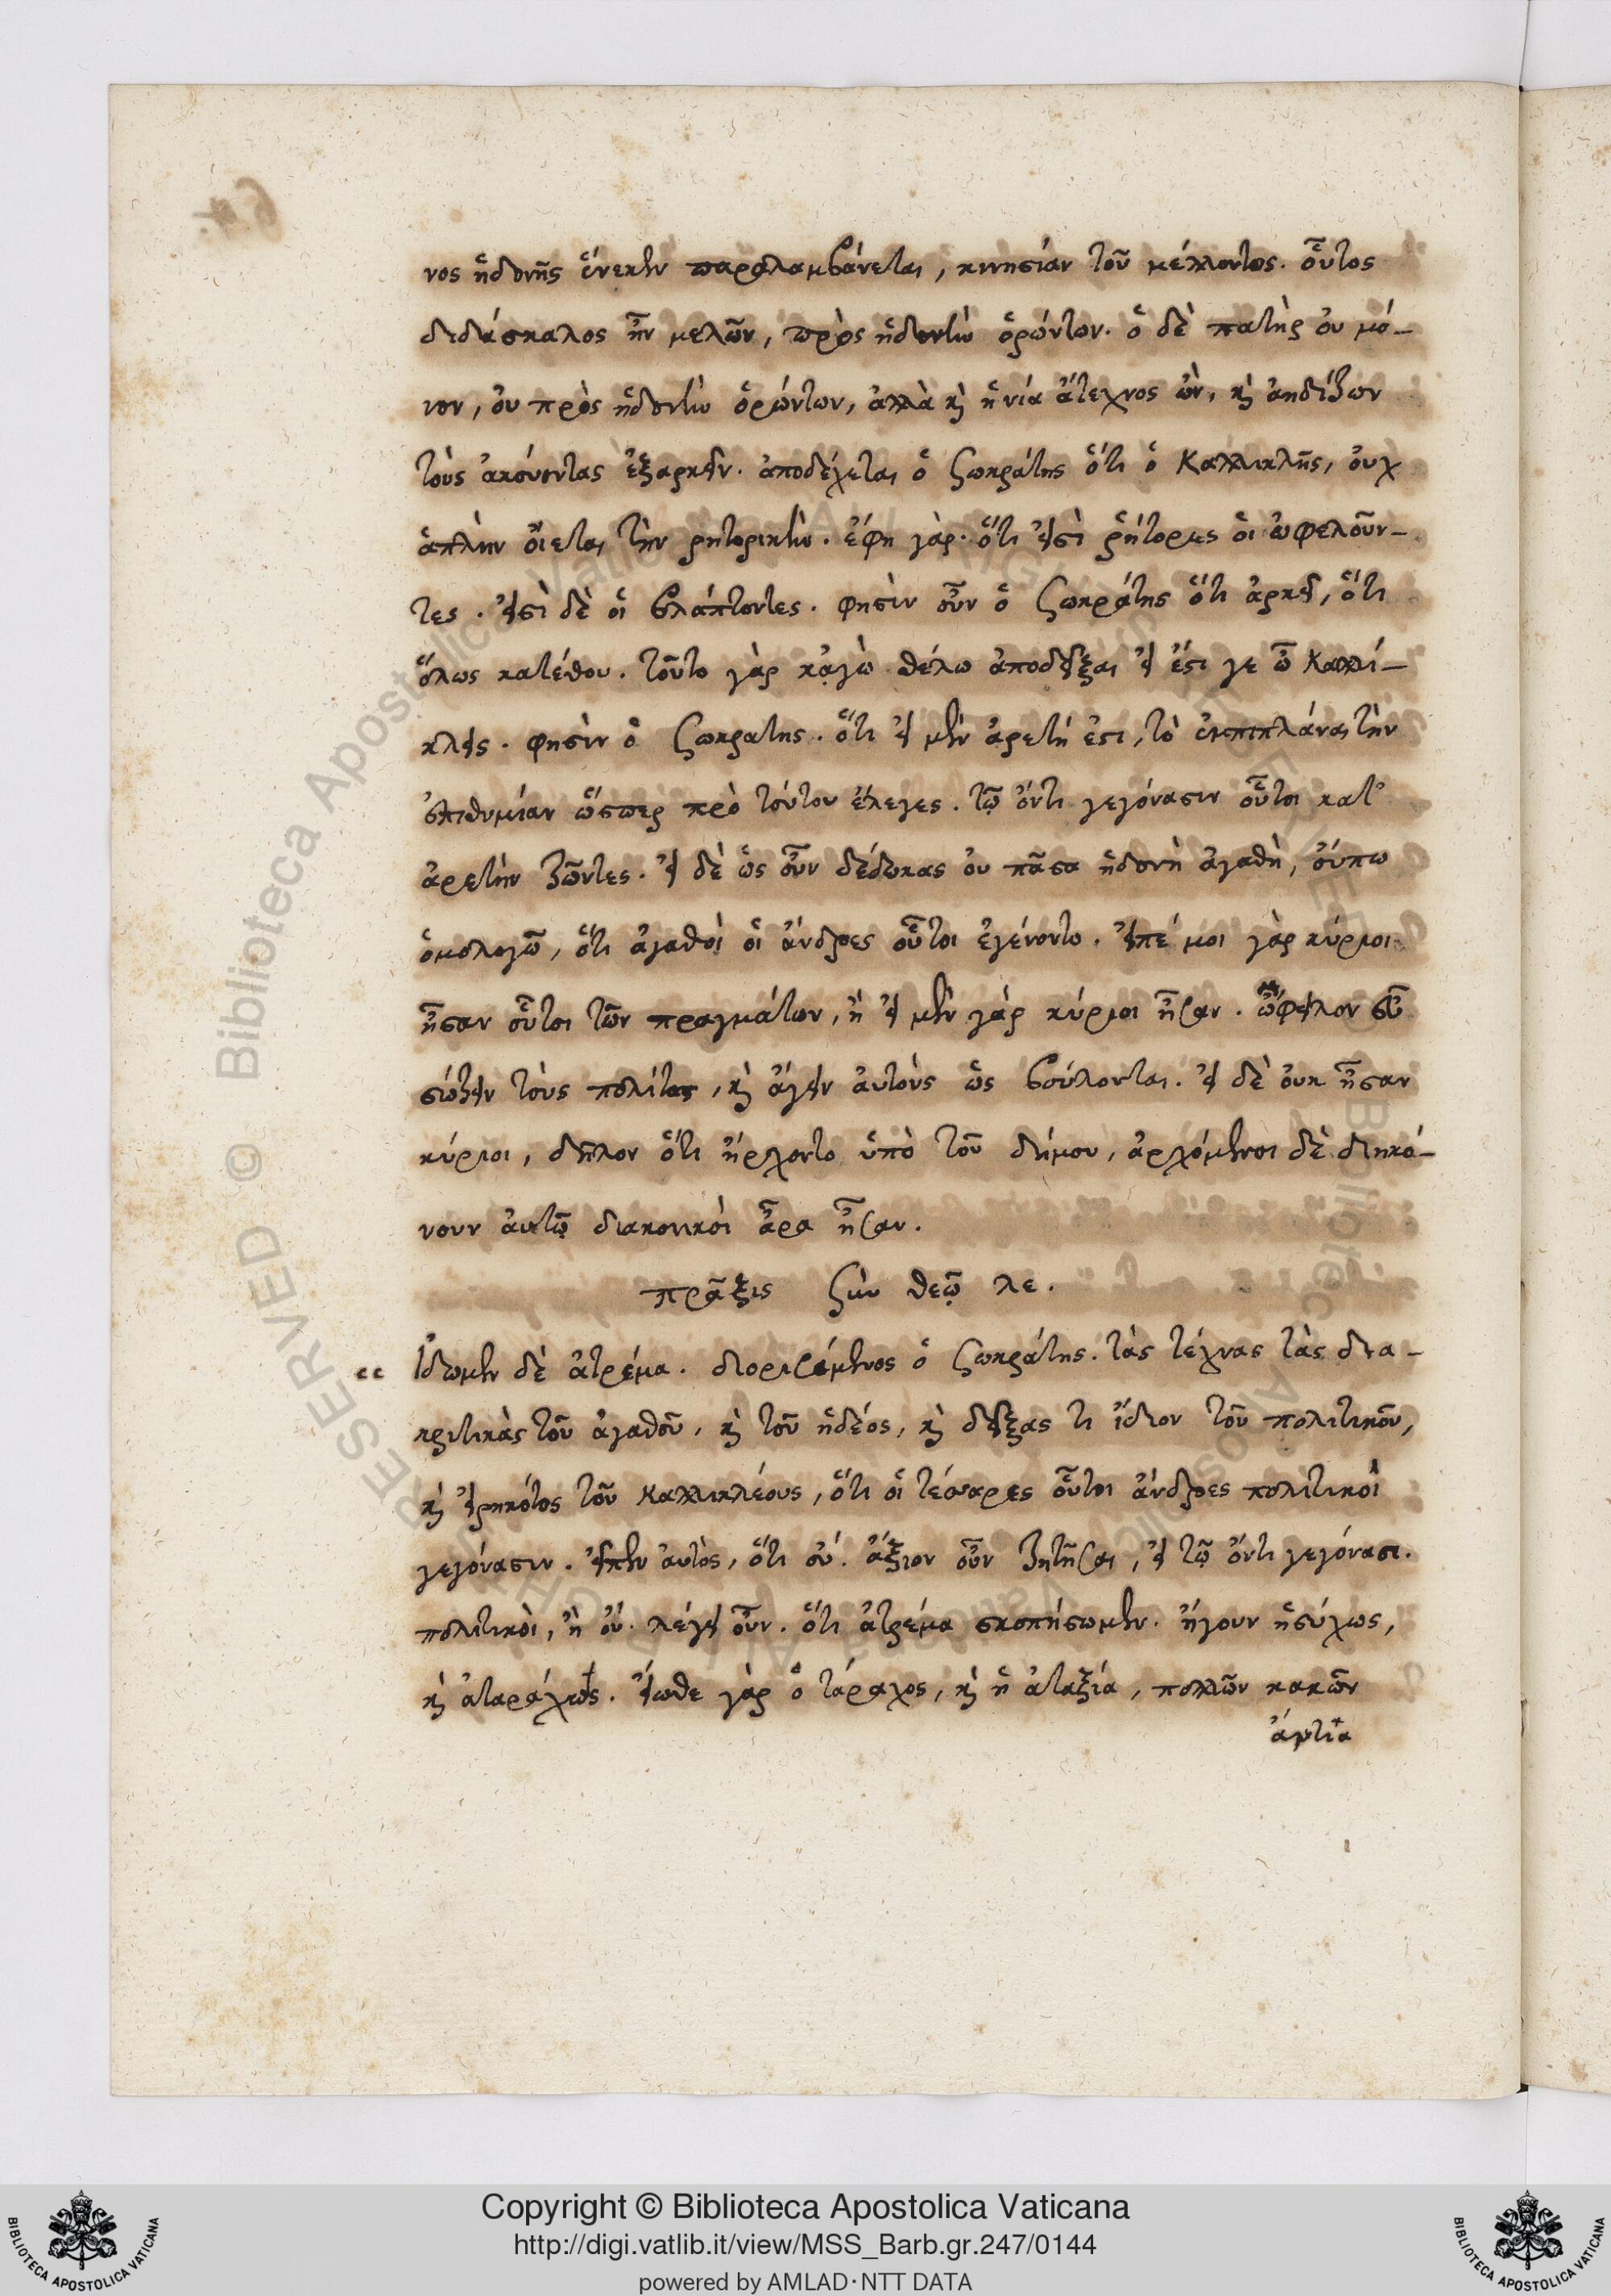 νος ἡδονῆς ἕνεκεν παραλαμβάνεται, κινησίαν τοῦ μέλλοντος. οὗτος
διδάσκαλος ἦν μελῶν, πρὸς ἡδονὴν ὁρώντων. ὁ δὲ πατὴρ οὐ μό-
νον, οὐ πρὸς ἡδονὴν ὁρώντων, ἀλλὰ καὶ ἡνία ἄτεχνος ὢν, καὶ ἀηδίζων
τοὺς ἀκούοντας ἐξαρκεῖν. ἀποδέχεται ὁ Σωκράτης ὅτι ὁ Καλλικλῆς, οὐχ
ἁπλὴν οἴεται τὴν ρητορικὴν. ἔφη γὰρ. ὅτι εἰσὶ ῥήτορες οἱ ὠφελοῦν-
τες. εἰσὶ δὲ οἱ βλάπτοντες. φησὶν οὖν ὁ Σωκράτης ὅτι ἀρκεῖ, ὅτι
ὅλως κατέθου. τοῦτο γὰρ κἀγὼ θέλω ἀποδεῖξαι εἰ ἔστι γε ὦ Καλλί-
κλεις. φησὶν ὁ Σωκρατης. ὅτι εἰ μὲν ἀρετή ἐστι, τὸ ἐμπιπλάναι τὴν
ἐπιθυμίαν ὥσπερ πρὸ τούτου ἔλεγες. τῷ ὄντι γεγόνασιν οὗτοι κατ'
ἀρετὴν ζῶντες. εἰ δὲ ὡς οὖν δέδωκας οὐ πᾶσα ἡδονὴ ἀγαθὴ, οὔπω
ὁμολογῶ, ὅτι ἀγαθοὶ οἱ ἄνδρες οὗτοι ἐγένοντο. εἰπέ μοι γὰρ κύριοι
ἦσαν οὗτοι τῶν πραγμάτων, ἢ εἰ μὲν γάρ κύριοι ἦσαν. ὤφειλον οὖν
σώζειν τοὺς πολίτας, καὶ ἄγειν αὐτοὺς ὡς βούλονται. εἰ δὲ οὐκ ἦσαν
κύριοι, δῆλον ὅτι ἤρχοντο ὑπὸ τοῦ δήμου, ἀρχόμενοι δὲ διηκό-
νουν αὐτῷ διακονικοὶ ἆρα ἦσαν.
πρᾶξις σὺν θεῷ λε.
Ἴδωμεν δὲ ἀτρέμα. διορισάμενος ὁ Σωκράτης. τὰς τέχνας τὰς δια-
κριτικὰς τοῦ ἀγαθοῦ, καὶ τοῦ ἡδέος, καὶ δείξας τι ἴδιον τοῦ πολιτικοῦ,
καὶ εἰρηκότος τοῦ Καλλικλέους, ὅτι οἱ τέσσαρες οὗτοι ἄνδρες πολιτικοὶ
γεγόνασιν. εἶπεν αὐτὸς, ὅτι οὐ. ἄξιον οὖν ζητῆσαι, εἰ τῷ ὄντι γεγόνασι.
πολιτικοὶ, ἢ οὐ. λέγει οὖν. ὅτι ἀτρέμα σκοπήσωμεν. ἤγουν ἡσύχως,
καὶ ἀταράχως. εἴωθε γὰρ ὁ τάραχος, καὶ ἡ ἀταξία, πολλῶν κακῶν
Copyright © Biblioteca Apostolica Vaticana
http://digi.vatlib.it/view/MSS_Barb.gr.247/0144
powered by AMLAD·NTT DATA